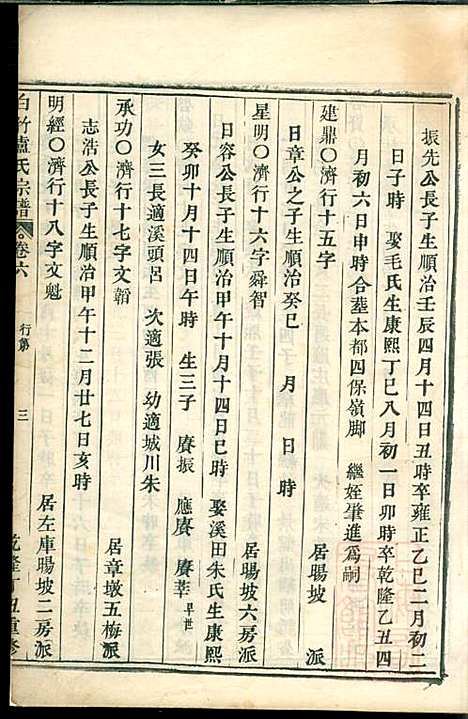 振先公長子生順治壬辰四月十四日丑時卒雍正乙巳二月初二
日子時 娶毛氏生康熙丁巳八月初一日卯時卒乾隆乙丑四
月初六日申時合塟本都四保嶺脚 繼姪肇進爲嗣
建鼎〇濟行十五字 居暘坡 派
日章公之子生順治癸巳 月 日 時
星明〇濟行十六字舜智 居暘坡六房派
日容公長子生順治甲午十月十四日巳時 娶溪田朱氏生康熙
癸卯十月十四日午時 生三子 賡振 應賡 賡莘早世
女三長適溪頭呂 次適張 幼適城川朱
承功〇濟行十七字文韜 居章墩五梅派
志浩公長子生順治甲午十二月廿七日亥時
明經〇濟行十八字文魁 居左庫暘坡二房派
白竹盧氏宗譜 卷六 行第 三 乾隆丁丑重修